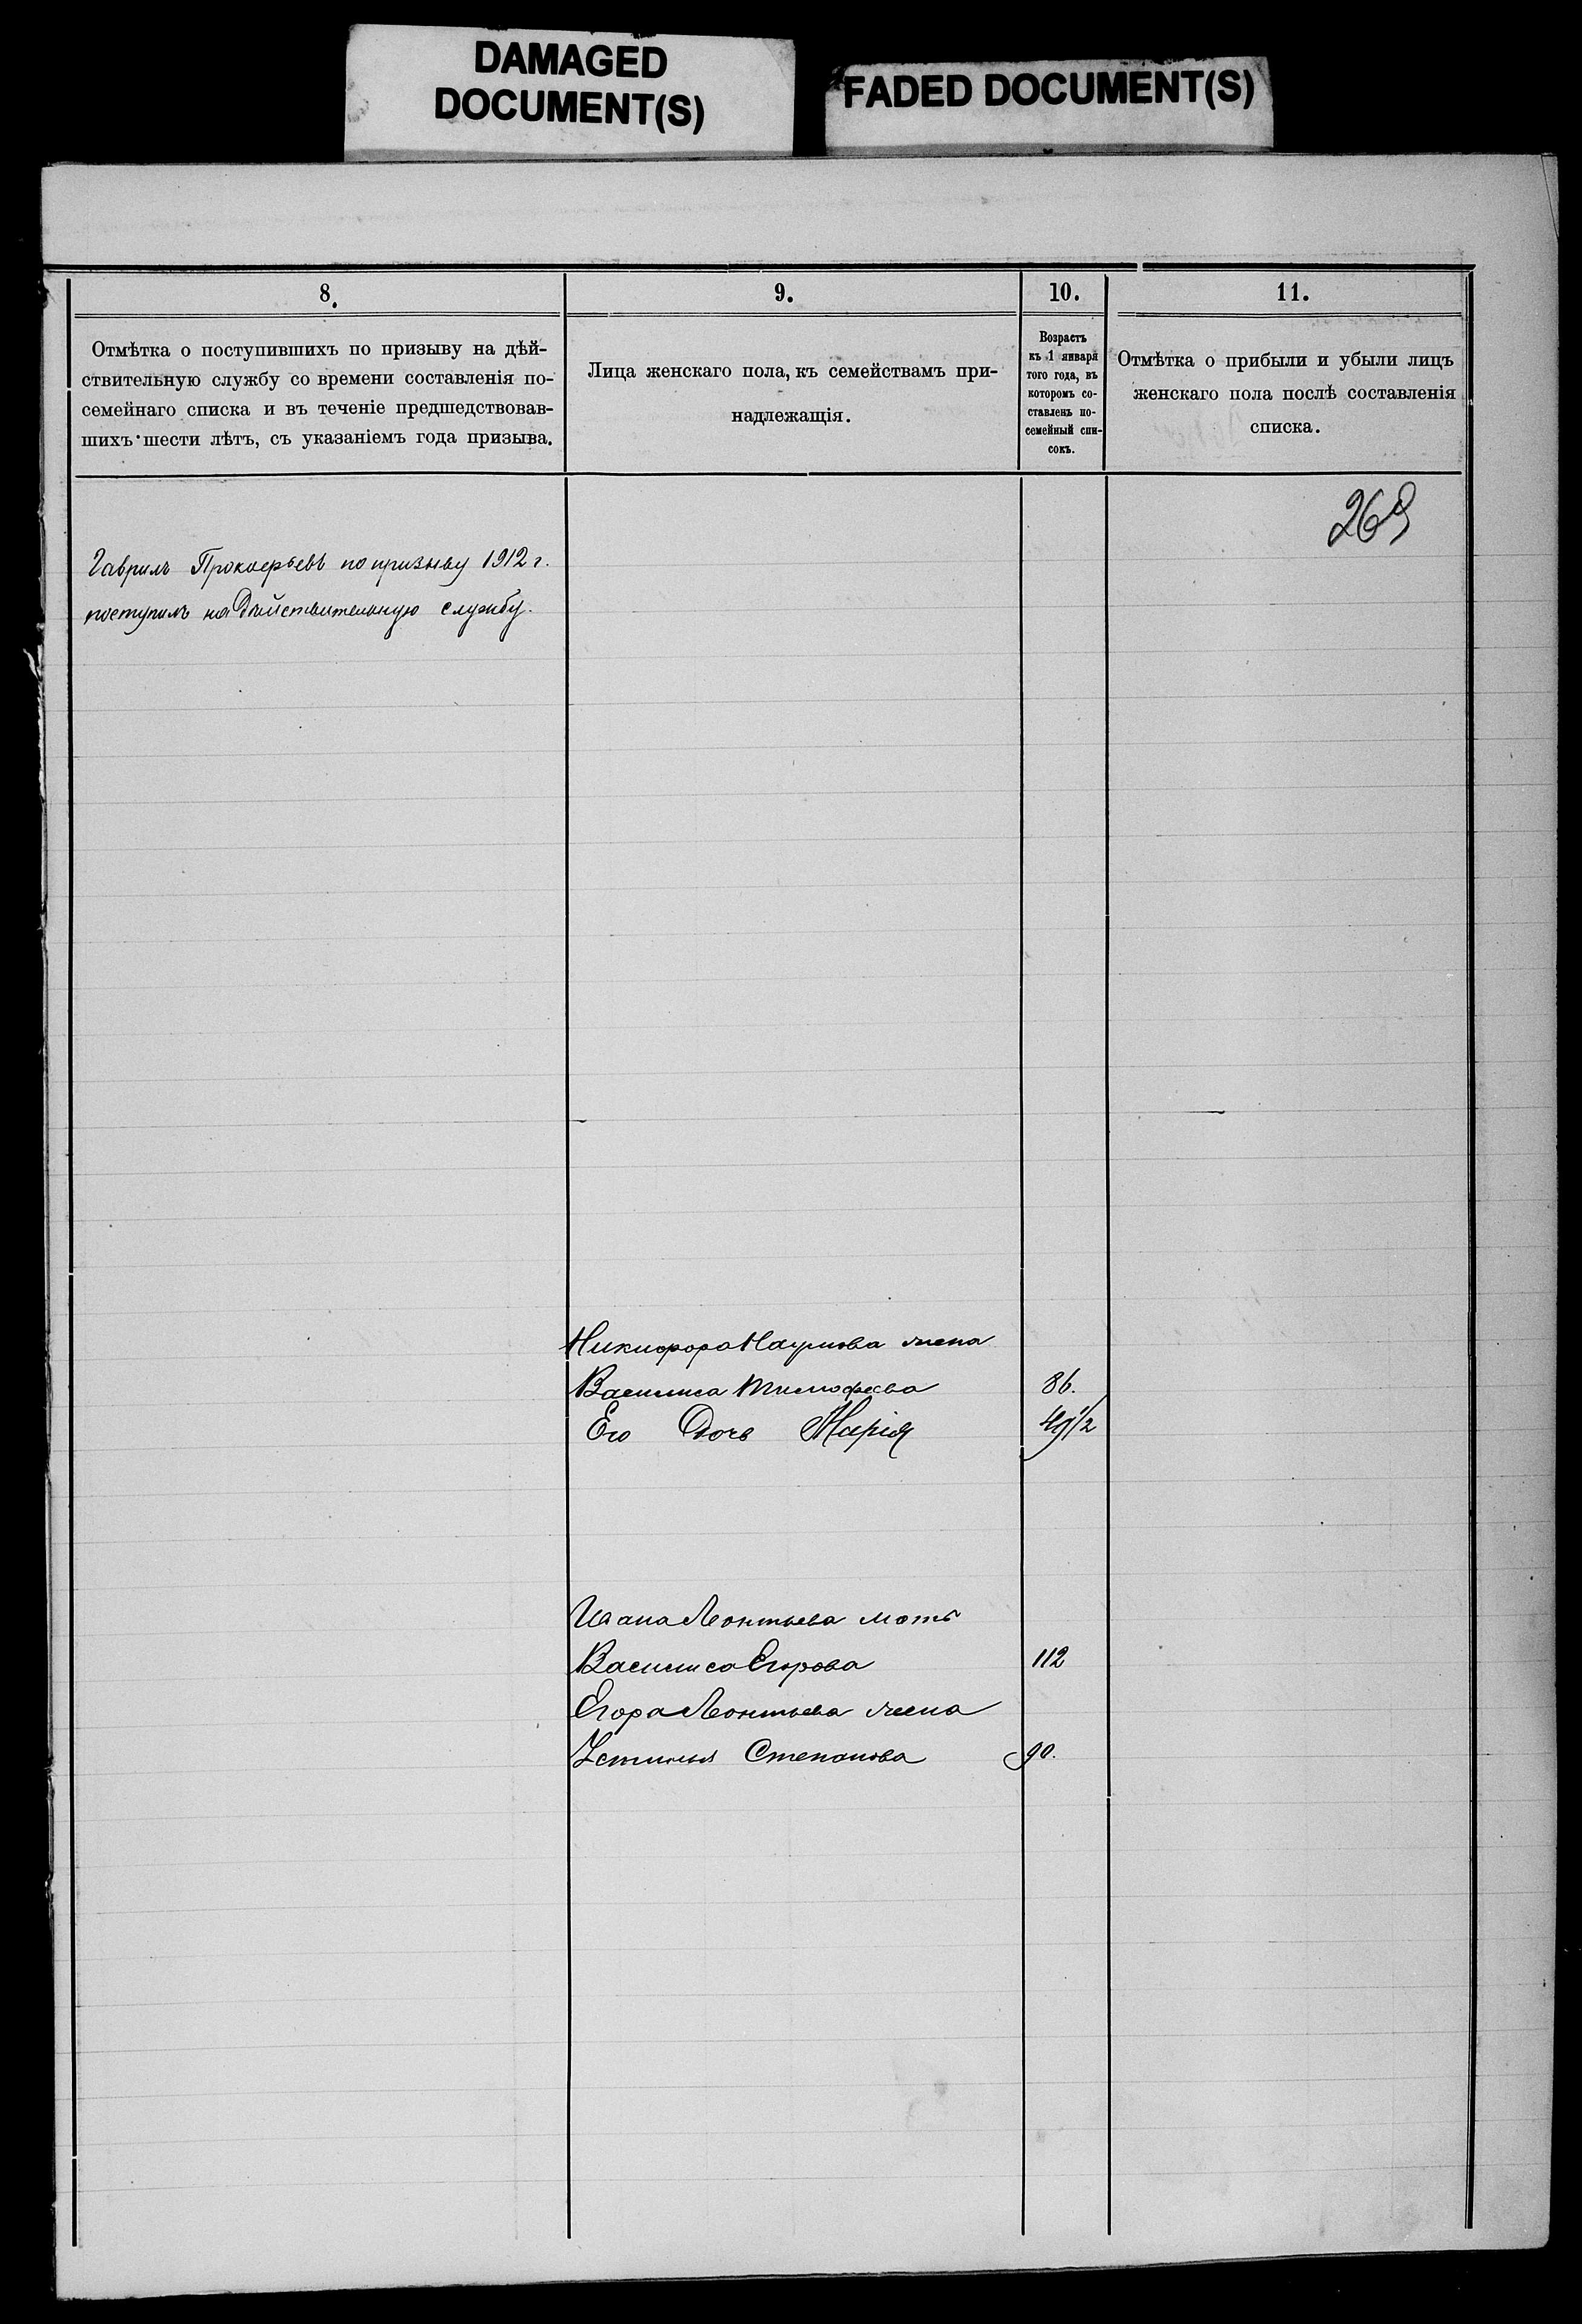 DAMAGED
DOCUMENT(S)
FADED DOCUMENT(S)
8.
Отмѣтка о поступившихъ по призыву на дѣй-
ствительную службу со времени составленія по-
семейнаго списка и въ теченіе предшедствовав-
шихъ шести лѣтъ, съ указаніемъ года призыва.
9.
Лица женскаго пола, къ семействамъ при-
надлежащія.
10.
Возрастъ
къ 1 января
того года, въ
которомъ со-
ставленъ по-
семейный спи-
сокъ.
11.
Отмѣтка о прибыли и убыли лицъ
женскаго пола послѣ составленія
списка.
269
Гаврилъ Прокофьевъ по призыву 1912 г.
поступилъ на дѣйствительную службу.
Никифора Наумова жена
Василиса Тимофеева 86.
Его Дочь Марія 49 1/2
Ивана Леонтьева мать
Василиса Егорова 112
Егора Леонтьева жена
Устинья Степанова 90.